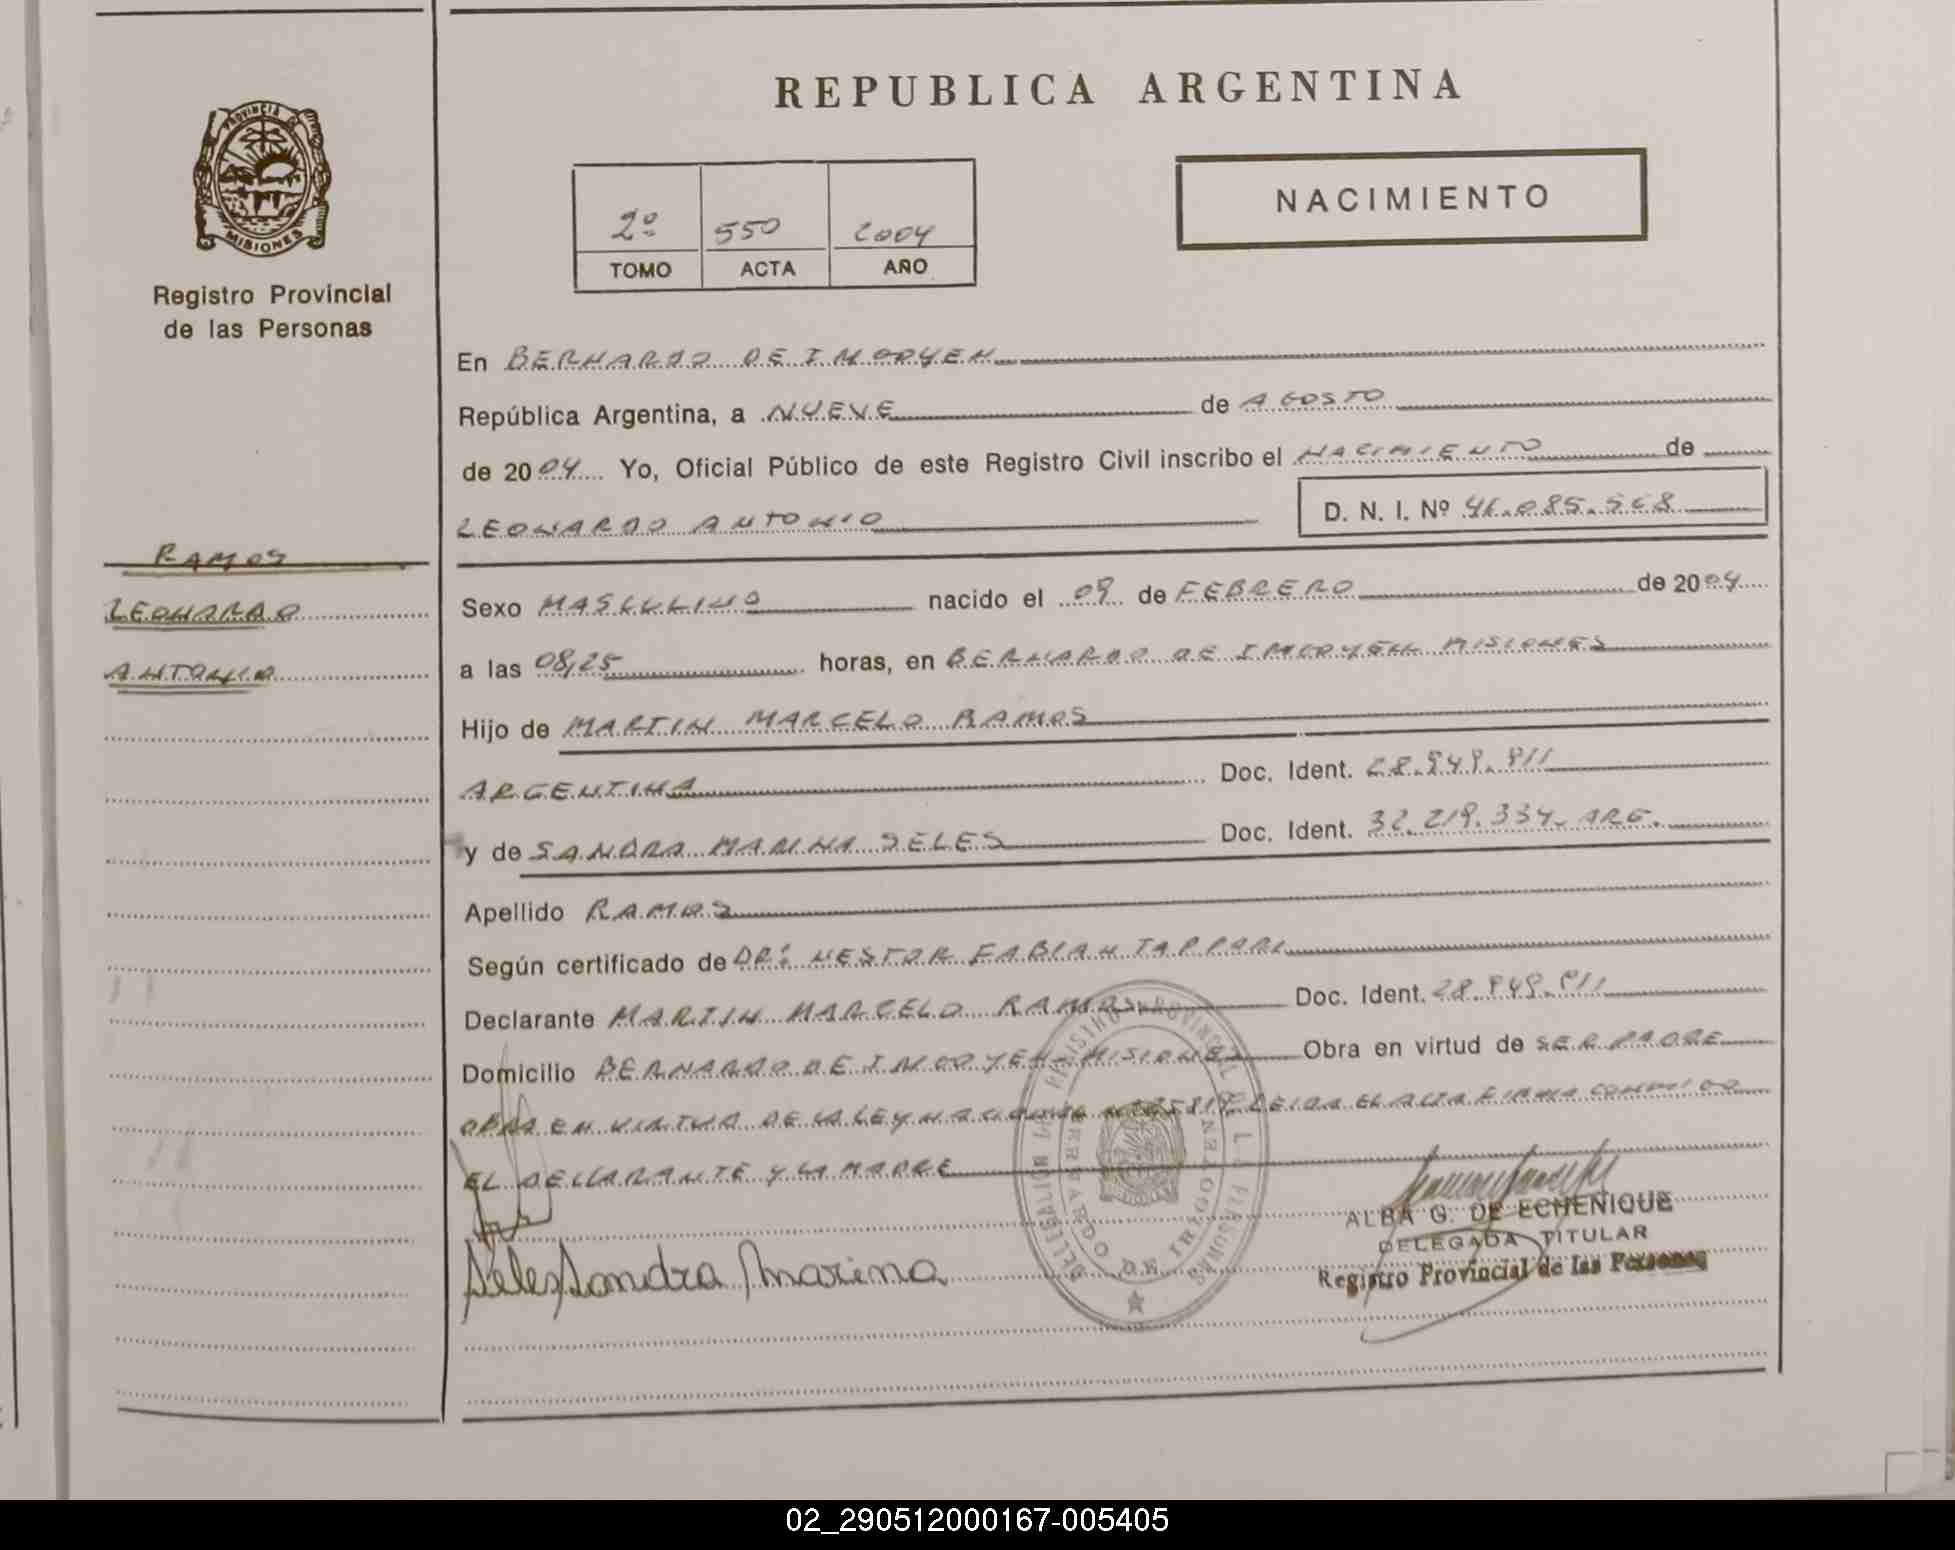 REPUBLICA ARGENTINA
PROVINCIA DE
MISIONES
Registro Provincial
de las Personas
2º 550 2004
TOMO ACTA AÑO
NACIMIENTO
En BERNARDO DE IRIGOYEN
República Argentina, a NUEVE de AGOSTO
de 2004 Yo, Oficial Público de este Registro Civil inscribo el NACIMIENTO de
LEONARDO ANTONIO D. N. I. Nº 46.085.568
RAMOS
LEONARDO
ANTONIO
Sexo MASCULINO nacido el 09 de FEBRERO de 2004
a las 08,25 horas, en BERNARDO DE IRIGOYEN MISIONES
Hijo de MARTIN MARCELO RAMOS
ARGENTINA Doc. Ident.
y de SANDRA MARINA SELES Doc. Ident. 32.219.334. ARG.
Apellido RAMOS
Según certificado de DR: NESTOR FABIAN
Declarante MARTIN MARCELO RAMOS Doc. Ident.
Domicilio BERNARDO DE IRIGOYEN-MISIONES Obra en virtud de SER PADRE
OBRA EN VIRTUD DE LA LEY NACIONAL LEIDA EL ACTA FIRMA CONMIGO
EL DECLARANTE Y LA MADRE
Seles Sandra Marina
ALBA G. DE ECHENIQUE
DELEGADA TITULAR
Registro Provincial de las Personas
02_290512000167-005405